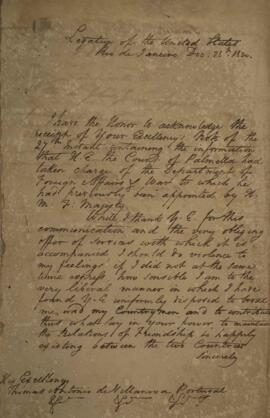 Legation of the United States
Rio de Janeiro Dec. 28th 1820.
I have the Honor to acknowledge the
receipt of Your Excellency's Note of the
27th instant containing the information
that H.E. the Count of Palmella had
taken charge of the Department of
Foreign Affairs & War to which he
had previously been appointed by H.
M. F. Majesty
While I thank Y.E. for this
communication and the very obliging
offer of services with which it is
accompanied I should do violence to
my feelings if I did not at the same
time express how sensible I am to the
very liberal manner in which I have
found Y.E. uniformly disposed to treat
me, and my Countrymen and to contribute
thus what lay in your power to maintain
the Relations of Friendship so happily
existing between the two Countries
Sincerely
His Excellency
Thomas Antonio de Villanova Portugal
&c &c &c